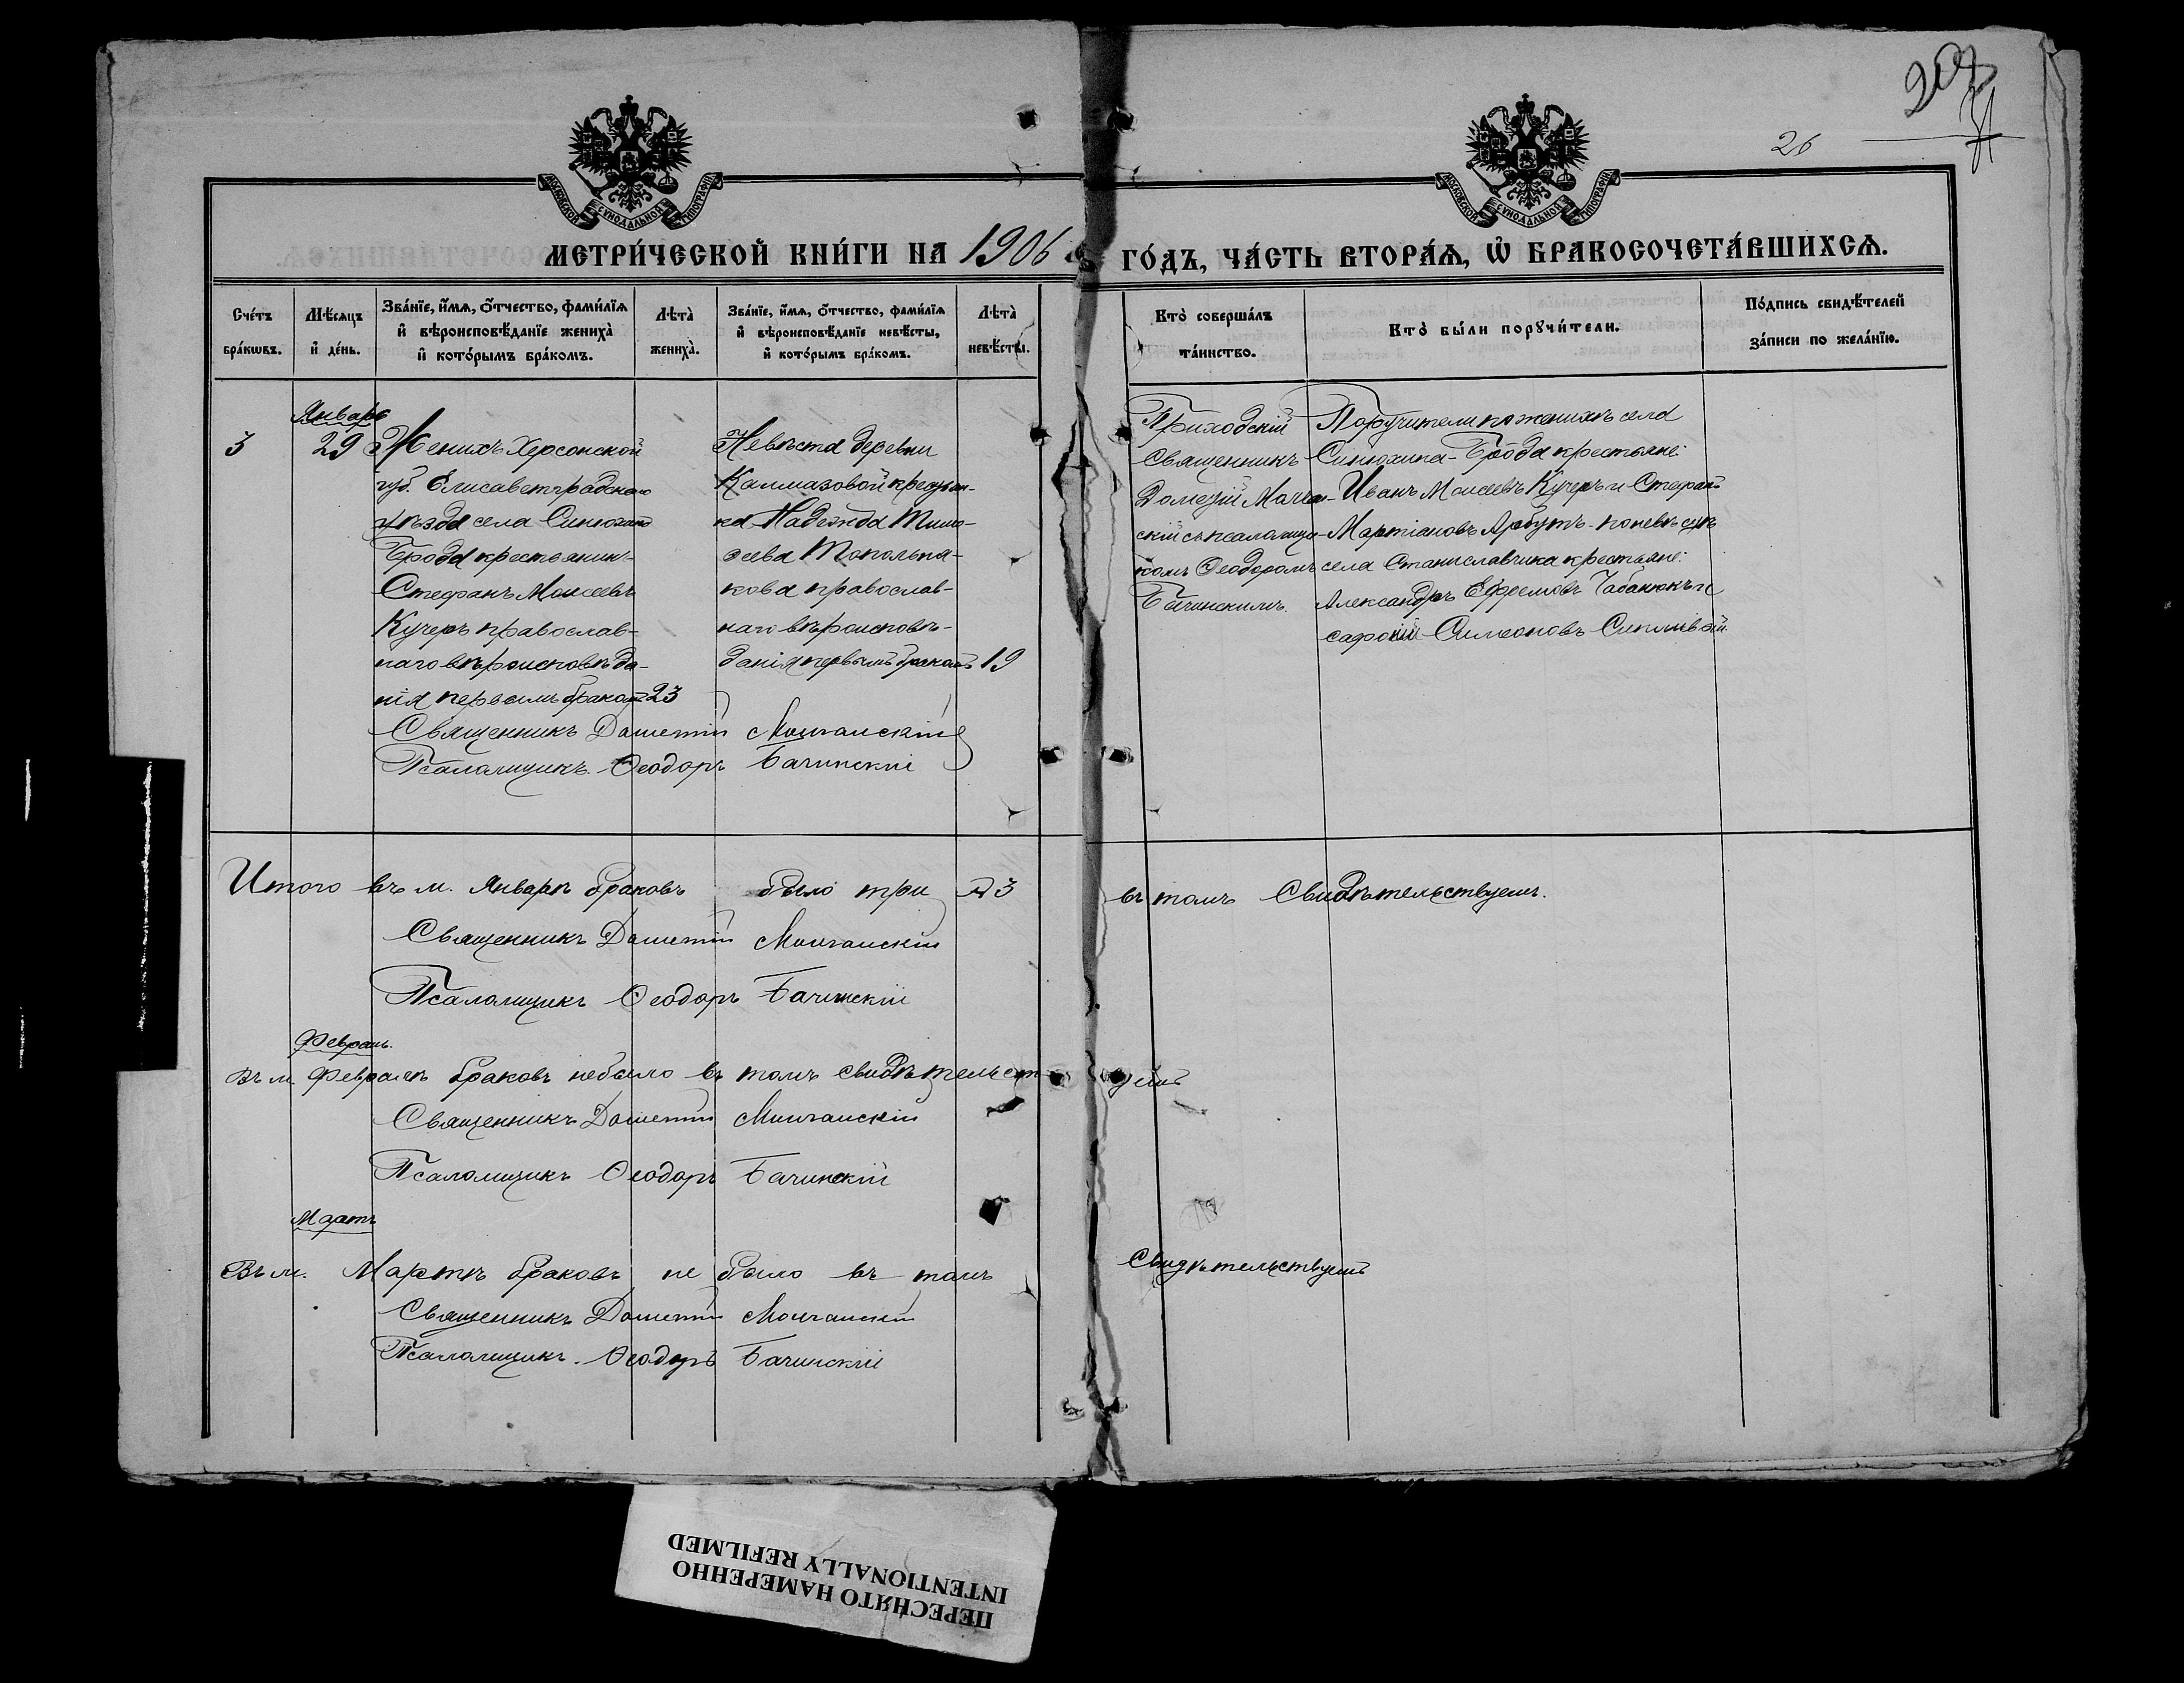 26
МОСКОВСКОЙ СУНОДАЛЬНОЙ ТИПОГРАФІИ
МОСКОВСКОЙ СУНОДАЛЬНОЙ ТИПОГРАФІИ
МЕТРИ́ЧЕСКОЙ КНИ́ГИ НА 1906 ГО́ДЪ, ЧА́СТЬ ВТОРА́Ѧ, Ѽ БРАКОСОЧЕТА́ВШИХСѦ.
Сче́тъ бра́кѡвъ.
Мѣ́сѧцъ и҆ де́нь.
Зва́нїе, и҆́мѧ, ѻ҆́тчество, фами́лїѧ и҆ вѣроисповѣ́данїе жениха̀ и҆ кото́рымъ бра́комъ.
Лѣта̀ жениха̀.
Зва́нїе, и҆́мѧ, ѻ҆́тчество, фами́лїѧ и҆ вѣроисповѣ́данїе невѣ́сты, и҆ кото́рымъ бра́комъ.
Лѣта̀ невѣ́сты.
Кто̀ соверша́лъ та́инство.
Кто̀ бы́ли порꙋчи́тели.
По́дпись свидѣ́телей за́писи по жела́нїю.
Январь
3
29
Женихъ Херсонской
губ. Елисаветградскаго
уѣзда села Синюхино
Брода крестьянинъ
Стефанъ Моисеевъ
Кучеръ православ-
наго вѣроисповѣда-
нія первымъ бракомъ 23
Невѣста деревни
Калмазовой крестьян-
ка Надежда Тимо-
ѳеева Топольня-
кова православ-
наго вѣроисповѣ-
данія первымъ бракомъ 19
Приходскій
Священникъ
Дометій Молчан-
скій съ псаломщи-
комъ Ѳеодоромъ
Бачинскимъ.
Поручители по женихѣ села
Синюхина-Брода крестьяне:
Иванъ Моисеевъ Кучеръ и Стефанъ
Мартіановъ Арбутъ - по невѣстѣ
села Станиславчика крестьяне:
Александръ Ефремовъ Чабанюкъ и
Симеоновъ
Священникъ Дометій Молчанскій
Псаломщикъ Ѳеодоръ Бачинскій
Итого въ м. Январѣ браковъ было три 3 въ томъ Свидѣтельствуемъ.
Священникъ Дометій Молчанскій
Псаломщикъ Ѳеодоръ Бачинскій
Февраль.
Въ м. Февралѣ браковъ небыло въ томъ свидѣтельствуемъ
Священникъ Дометій Молчанскій
Псаломщикъ Ѳеодоръ Бачинскій
Мартъ
Въ м. Мартѣ браковъ не было въ томъ Свидѣтельствуемъ
Священникъ Дометій Молчанскій
Псаломщикъ Ѳеодоръ Бачинскій
ПЕРЕСНЯТО НАМЕРЕННО
INTENTIONALLY REFILMED